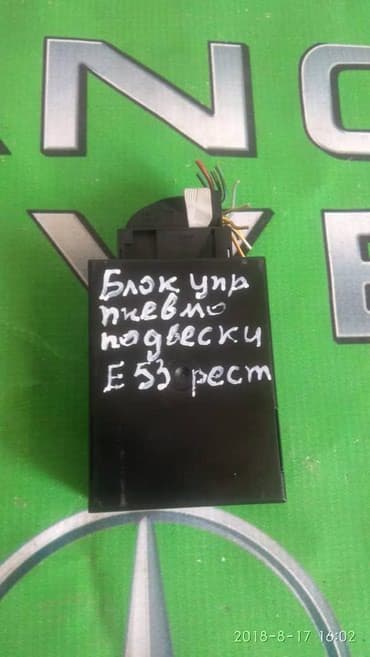 Блок упр
пневмо
подвески
Е53 рест
2018-8-17 16:02